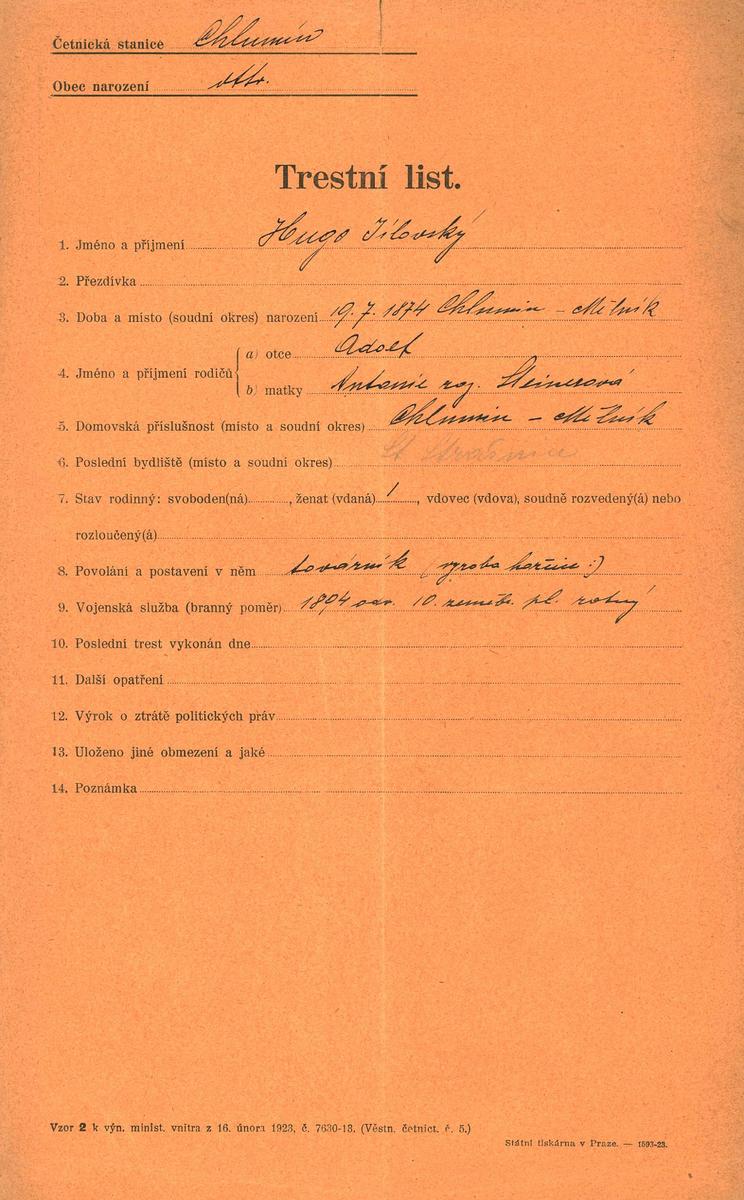 Četnická stanice Chlumín
Obec narození dtto.
Trestní list.
1. Jméno a příjmení Hugo Jílovský
2. Přezdívka
3. Doba a místo (soudní okres) narození 19. 7. 1874 Chlumín - Mělník
4. Jméno a příjmení rodičů
a) otce Adolf
b) matky Antonie roz. Steinerová
5. Domovská příslušnost (místo a soudní okres) Chlumín - Mělník
6. Poslední bydliště (místo a soudní okres) St Strašnice
7. Stav rodinný: svoboden(ná) , ženat (vdaná) 1 , vdovec (vdova), soudně rozvedený(á) nebo
rozloučený(á)
8. Povolání a postavení v něm továrník (výroba hořčice :)
9. Vojenská služba (branný poměr) 1894 odv. 10. zeměbr. pl. rotný
10. Poslední trest vykonán dne
11. Další opatření
12. Výrok o ztrátě politických práv
13. Uloženo jiné obmezení a jaké
14. Poznámka
Vzor 2 k výn. minist. vnitra z 16. února 1923, č. 7630-13. (Věstn. četnict. č. 5.)
Státní tiskárna v Praze. — 1593-23.